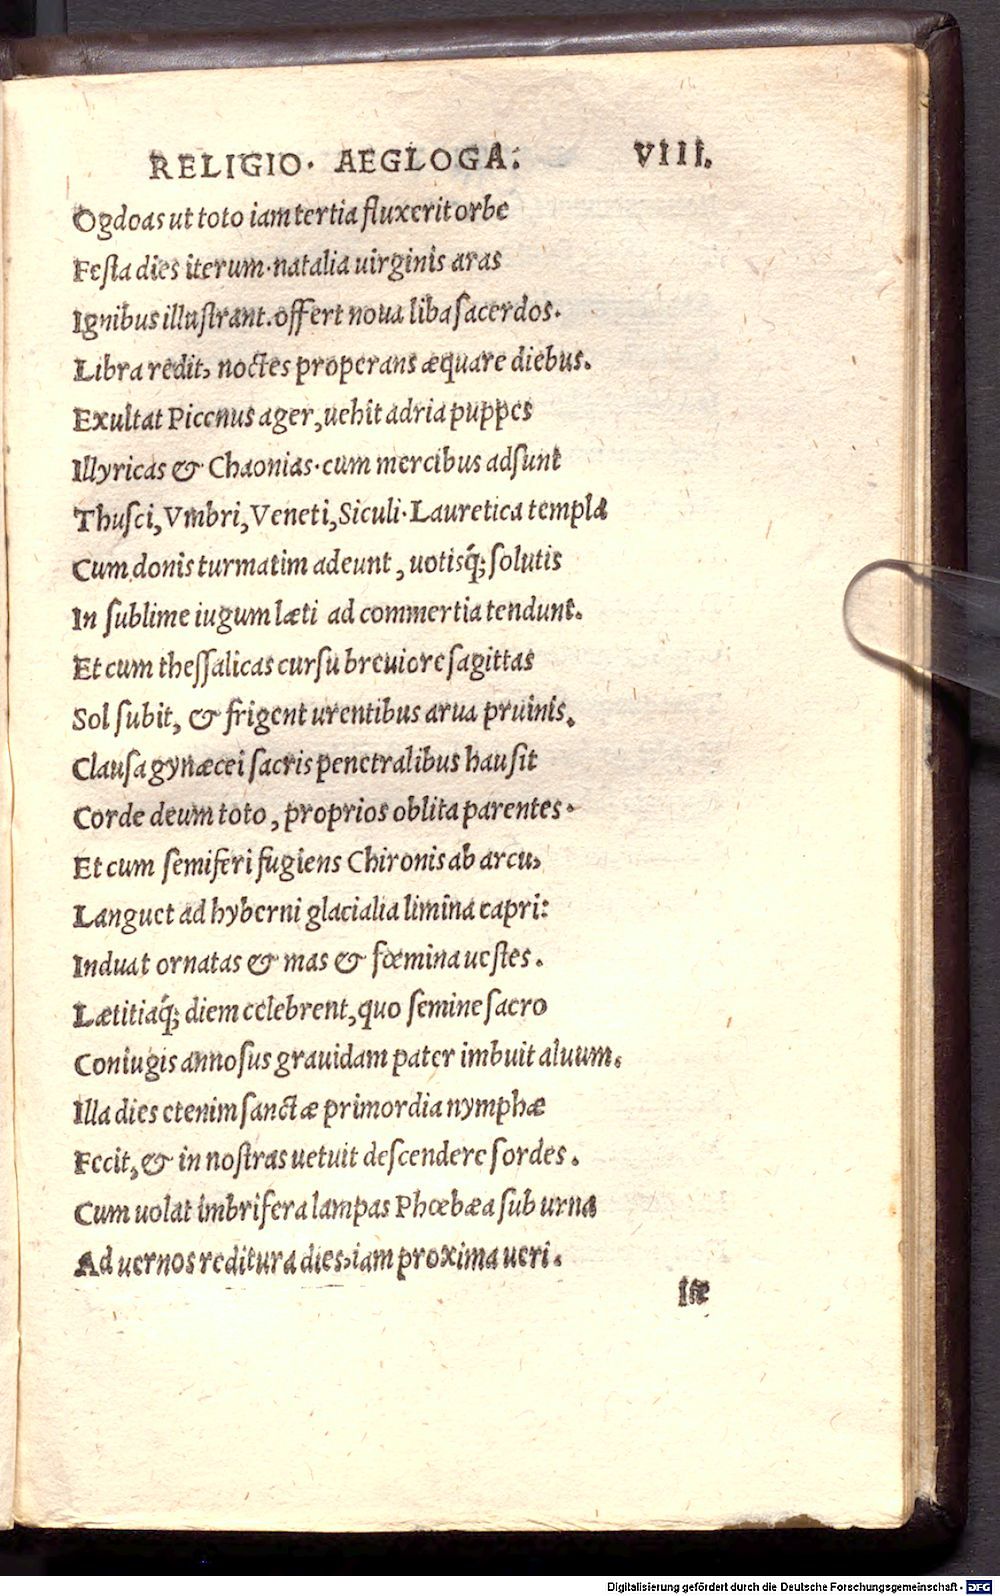 RELIGIO. AEGLOGA. VIII.
Ogdoas ut toto iam tertia fluxerit orbe
Festa dies iterum. natalia uirginis aras
Ignibus illustrant. offert noua liba sacerdos.
Libra redit, noctes properans æquare diebus.
Exultat Picenus ager, uehit adria puppes
Illyricas & Chaonias. cum mercibus adsunt
Thusci, Vmbri, Veneti, Siculi. Lauretica templa
Cum donis turmatim adeunt, uotisq́; solutis
In sublime iugum læti ad commertia tendunt.
Et cum thessalicas cursu breuiore sagittas
Sol subit, & frigent urentibus arua pruinis.
Clausa gynæcei sacris penetralibus hausit
Corde deum toto, proprios oblita parentes.
Et cum semiferi fugiens Chironis ab arcu,
Languet ad hyberni glacialia limina capri:
Induat ornatas & mas & fœmina uestes.
Lætitiaq́; diem celebrent, quo semine sacro
Coniugis annosus grauidam pater imbuit aluum.
Illa dies etenim sanctæ primordia nymphæ
Fecit, & in nostras uetuit descendere sordes.
Cum uolat imbrifera lampas Phœbæa sub urna
Ad uernos reditura dies, iam proxima ueri.
Digitalisierung gefördert durch die Deutsche Forschungsgemeinschaft - DFG